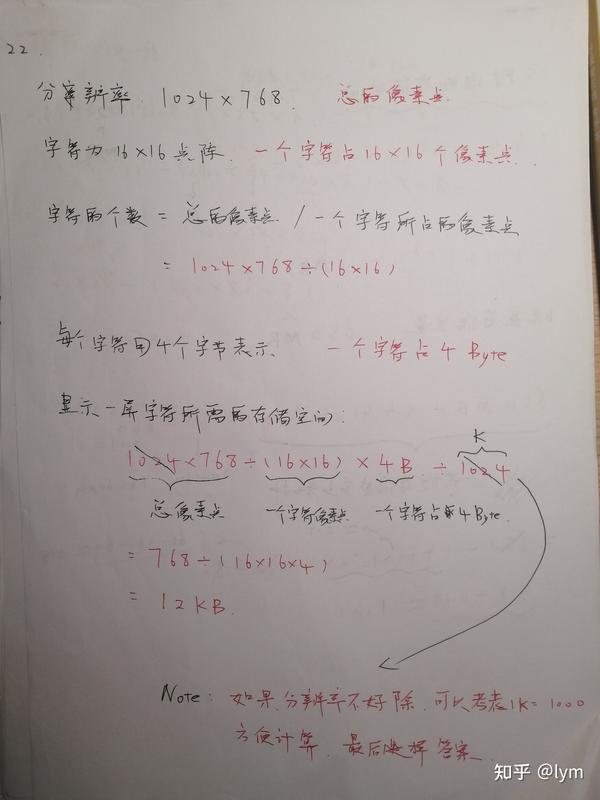 22.
分辨率 1024×768. 总的像素点.
字符为16×16点阵. 一个字符占16×16个像素点.
字符的个数 = 总的像素点 / 一个字符所占的像素点
= 1024×768÷(16×16)
每个字符用4个字节表示. 一个字符占4 Byte
显示一屏字符所需的存储空间:
K
1024×768÷(16×16)×4B÷1024
总像素点 一个字符像素点 一个字符占4Byte.
= 768÷(16×16×4)
= 12KB.
Note: 如果分辨率不好除,可以考虑1K=1000
方便计算,最后选择答案.
知乎 @lym